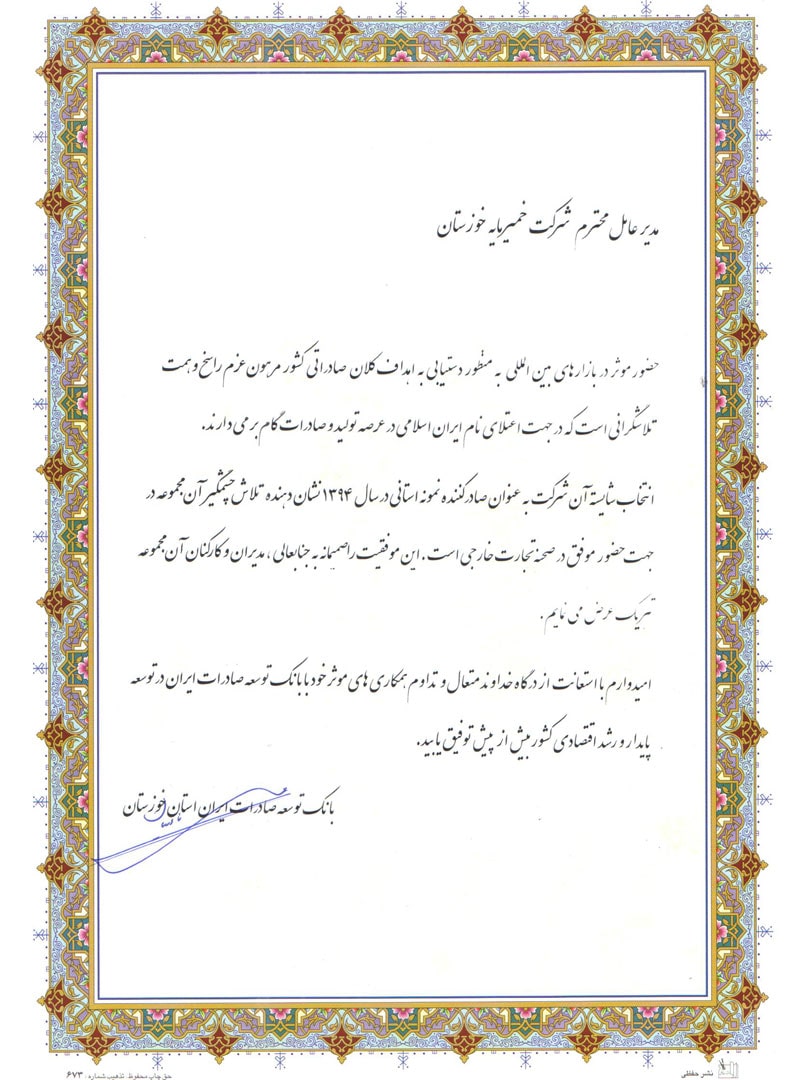 مدیر عامل محترم شرکت خمیرمایه خوزستان
حضور موثر در بازارهای بین المللی به منظور دستیابی به اهداف کلان صادراتی کشور مرهون عزم راسخ و همت
تلاشگرانی است که در جهت اعتلای نام ایران اسلامی در عرصه تولید و صادرات گام بر می دارند.
انتخاب شایسته آن شرکت به عنوان صادر کننده نمونه استانی در سال ۱۳۹۴ نشان دهنده تلاش چشمگیر آن مجموعه در
جهت حضور موفق در صحنه تجارت خارجی است. این موفقیت را صمیمانه به جنابعالی، مدیران و کارکنان آن مجموعه
تبریک عرض می نمایم.
امیدوارم با استعانت از درگاه خداوند متعال و تداوم همکاری های موثر خود با بانک توسعه صادرات ایران در توسعه
پایدار و رشد اقتصادی کشور بیش از پیش توفیق یابید.
بانک توسعه صادرات ایران استان خوزستان
نشر حفظی
حق چاپ محفوظ. تذهیب شماره: ۶۷۳